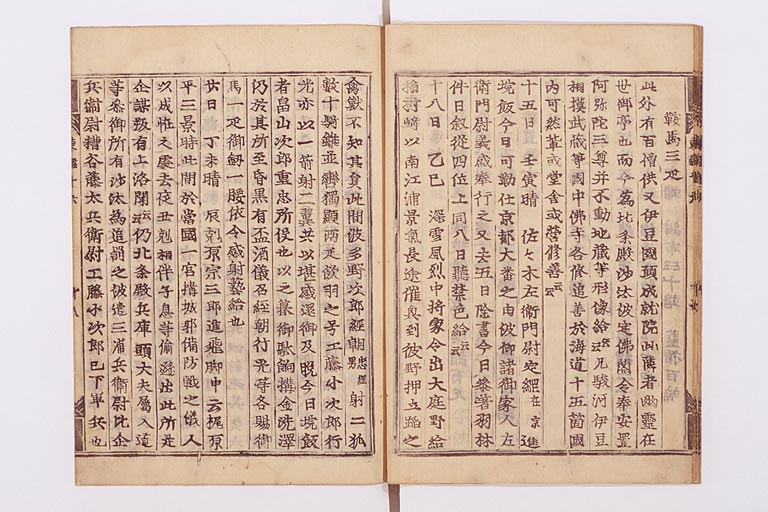 鞍馬三疋
此外有百僧供又伊豆國願成就院北隣者幽霊在
世御亭也而今為北条殿沙汰被定佛閣令奉安置
阿弥陀三尊并不動地蔵等形像給云云凡駿河伊豆
相摸武蔵等國中佛寺各修追善於海道十五箇國
内可然輩或堂舎或營修善云云
十五日 壬寅晴 佐々木左衛門尉定綱在京進
境飯今日可勤仕京都大番之由被仰諸御家人左
衛門尉義盛奉行之又去五日除書今日參著羽林
件日叙從四位上同八日聽禁色給云云
十八日 乙巳 深雪風烈中將家令出大庭野給
以南江浦景氣長途催興到彼野押立路之
禽獣不知其員此間波多野次郎經朝忠經男射二狐
數十騎雖並轡獨顧兩疋欲羽之号工藤小次郎行
光亦以一箭射二翼共以堪感還御及晩今日境飯
者畠山次郎重忠所役也以之暮御 餉搆金洗澤
仍於其所至昏黒有盃酒儀召經朝行光等各賜御
馬一疋御釼一腰依令感射藝給也
廿日 丁未晴 辰尅原宗三郎進飛脚申云梶原
平三景時此間於當國一宮搆城郭備防戦之儀人
以成恠之處去夜丑尅相伴子息等偸逃出此所是
企謀叛有上洛聞云云仍北条殿兵庫頭大夫属入道
等參御所有沙汰為追罰之被遣三浦兵衛尉比企
兵衛尉糟谷藤太兵衛尉工藤小次郎已下軍兵也